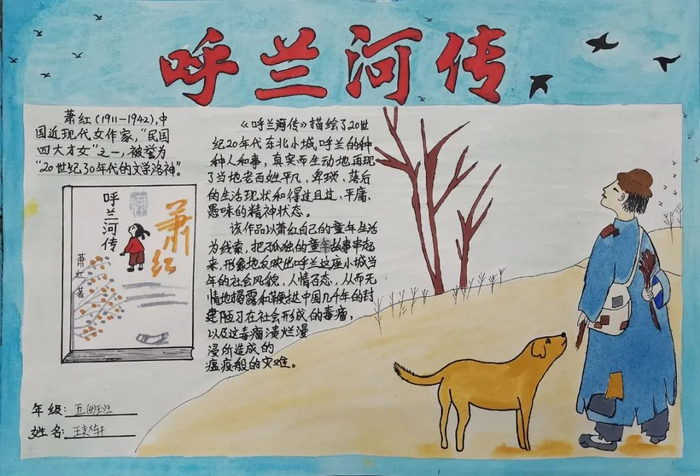 呼兰河传
萧红(1911-1942),中
国近现代女作家,"民国
四大才女"之一,被誉为
"20世纪30年代的文学洛神"。
呼兰河传
萧红
萧红 著
《呼兰河传》描绘了20世
纪20年代东北小城,呼兰的种
种人和事,真实而生动地再现
了当地老百姓平凡、卑琐、落后
的生活现状和得过且过、平庸、
愚昧的精神状态。
该作品以萧红自己的童年生活
为线索,把孤独的童年故事串起
来,形象地反映出呼兰这座小城当
年的社会风貌、人情百态,从而无
情地揭露和鞭挞中国几千年的封
建陋习在社会形成的毒瘤,
以及这毒瘤溃烂漫
漫所造成的
瘟疫般的灾难。
年级:
姓名: